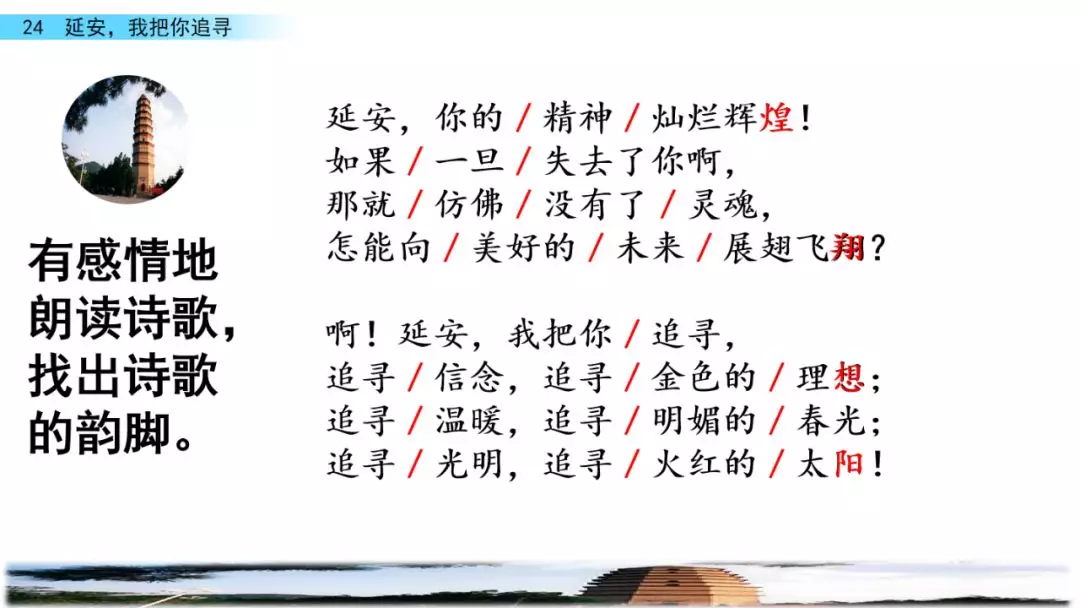 24 延安，我把你追寻
有感情地
朗读诗歌，
找出诗歌
的韵脚。
延安，你的/精神/灿烂辉煌！
如果/一旦/失去了你啊，
那就/仿佛/没有了/灵魂，
怎能向/美好的/未来/展翅飞翔？
啊！延安，我把你/追寻，
追寻/信念，追寻/金色的/理想；
追寻/温暖，追寻/明媚的/春光；
追寻/光明，追寻/火红的/太阳！